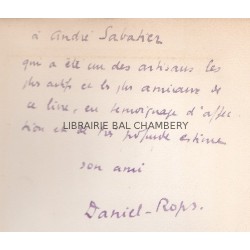 à André Sabatier
qui a été un des artisans les
plus actifs et les plus amicaux de
ce livre, en témoignage d'affec
tion et de très profonde estime
LIBRAIRIE BAL CHAMBERY
son ami
Daniel-Rops.